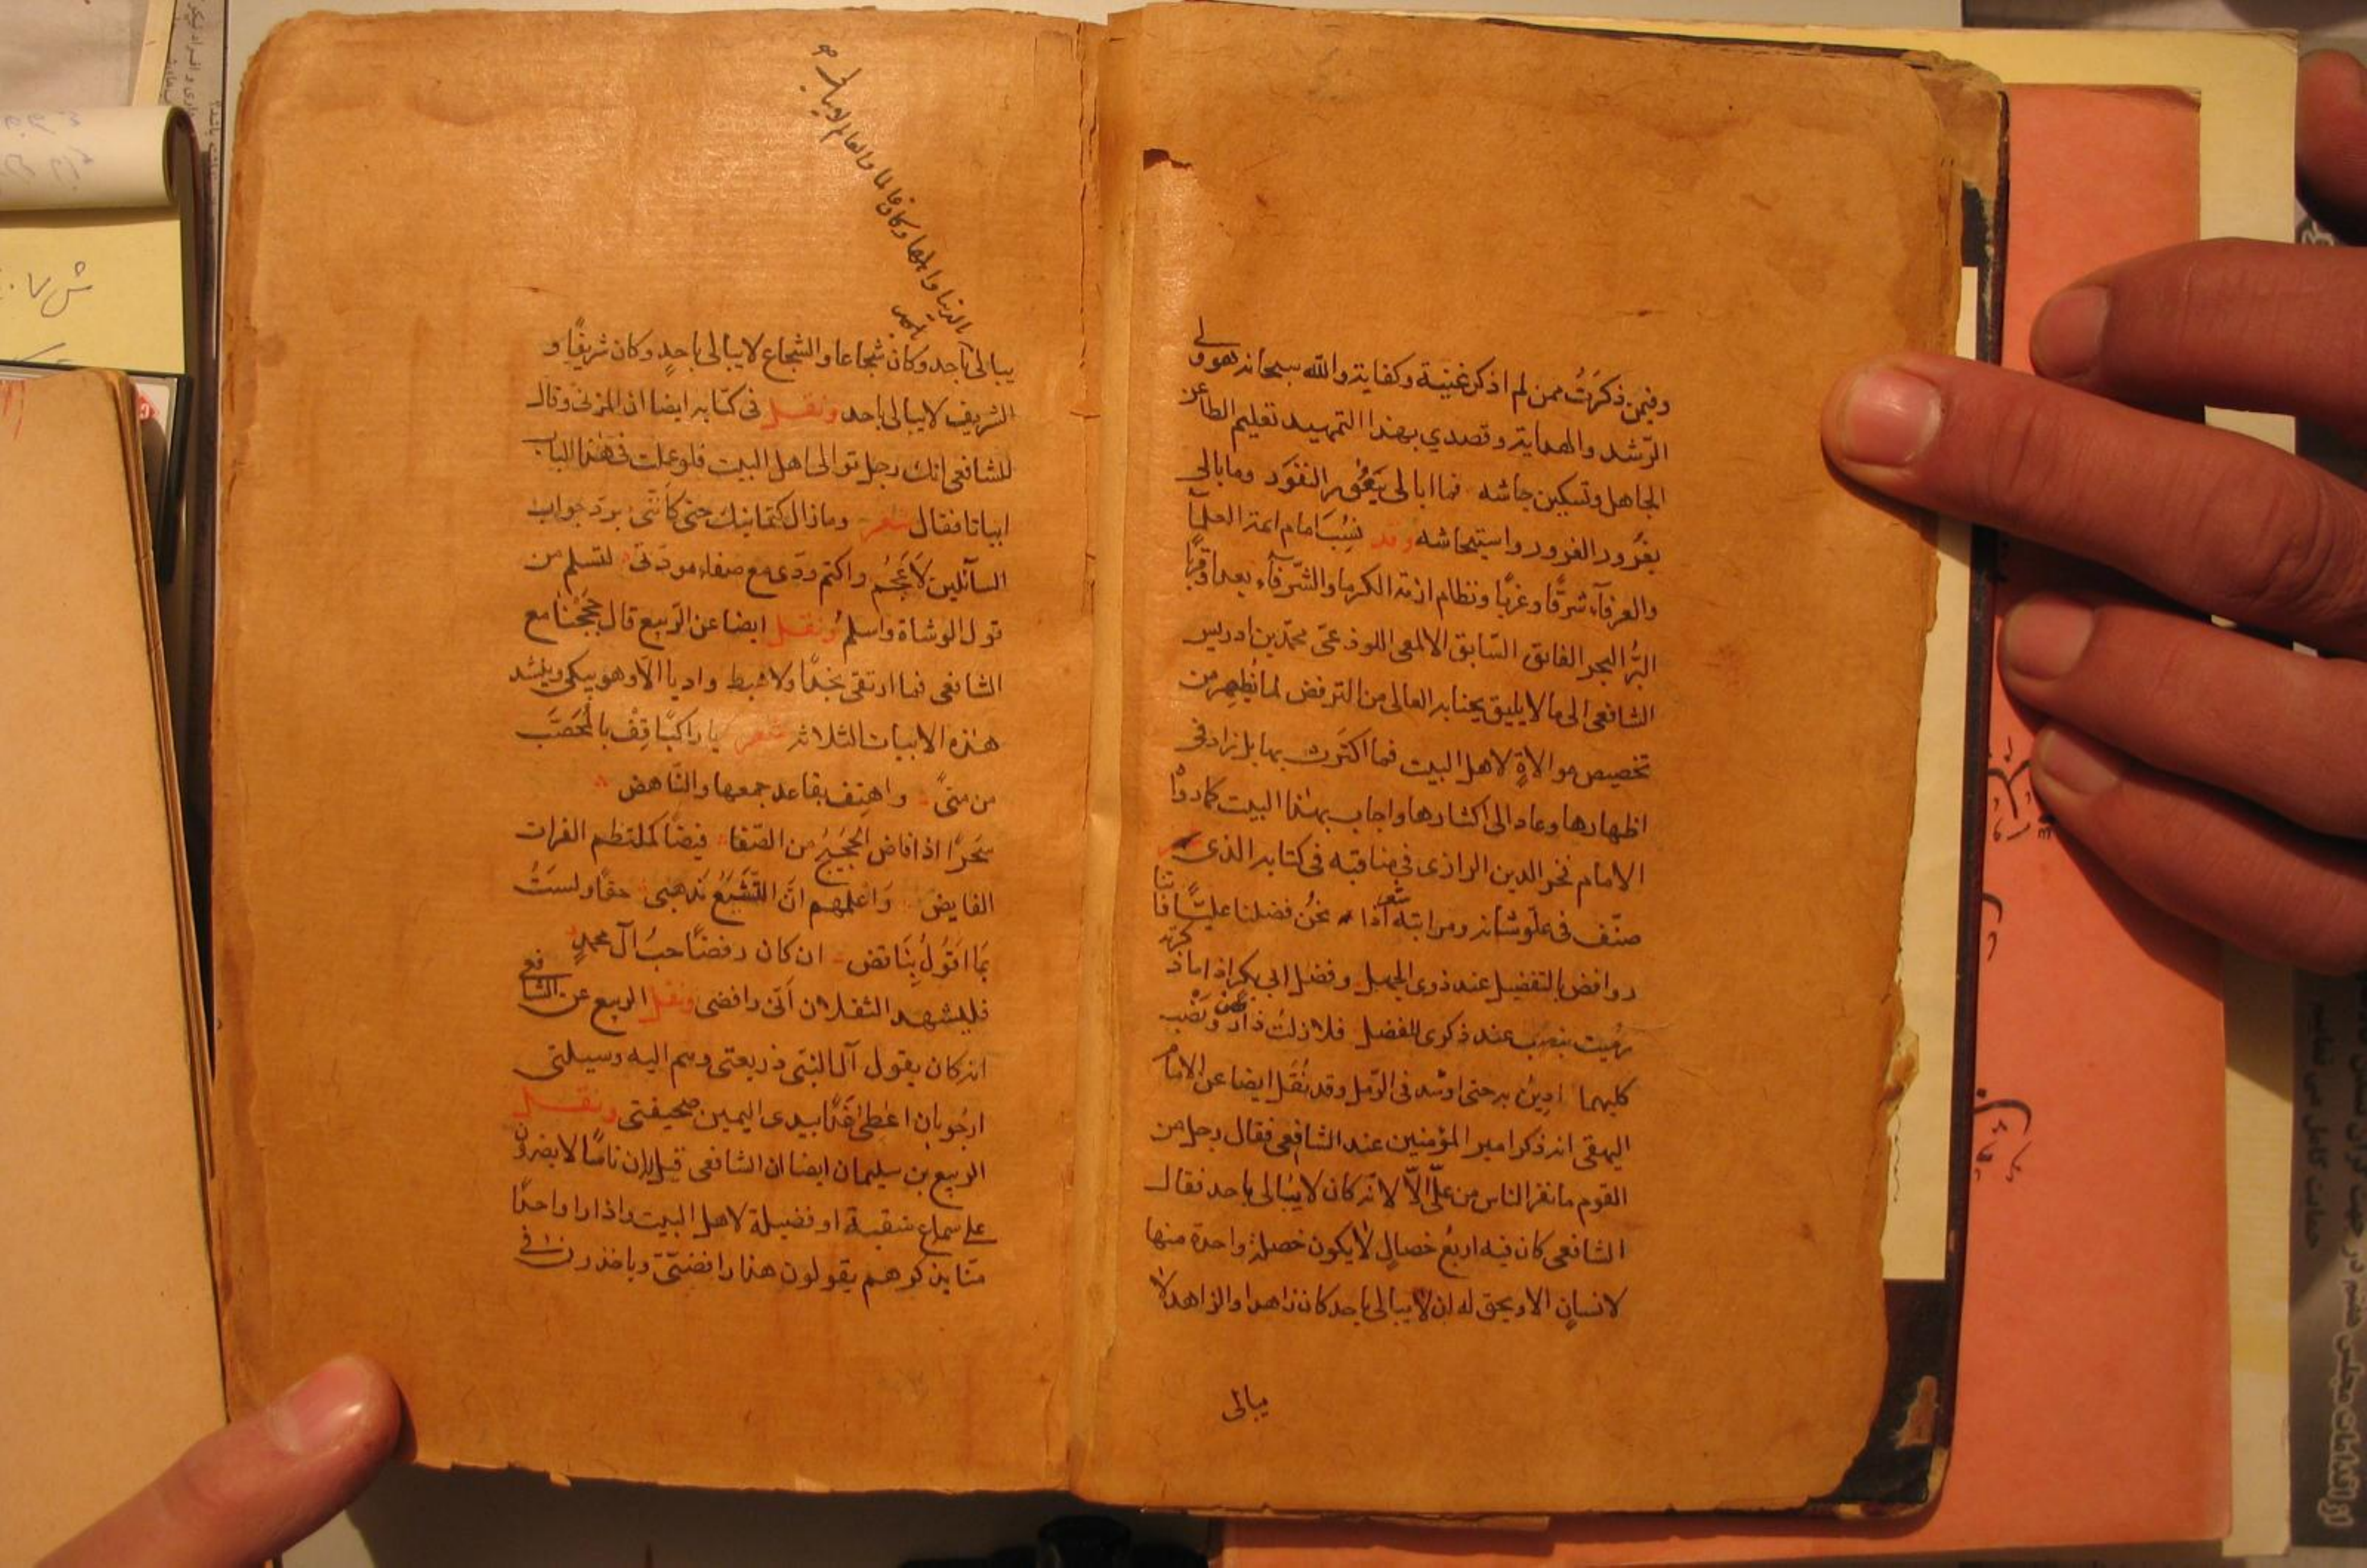 وفيمن ذكرتُ ممن لم اذكر غنية وكفاية والله سبحانه هو ولي
الرّشد والهداية وقصدي بهذا التمهيد تعليم الطاعن
الجاهل وتسكين جاشه فما ابالى
بغرور الغرور واستيحاشه وقد نُسِبَ امام ائمة العلمآ
والعرفآء شرقًا وغربًا ونظام ازمة الكرما والشّرفآء بعدا وقربًا
البرُّ البحر الفائق السّابق الالمعى اللوذعىّ محمّد بن ادريس
الشافعى الى ما لا يليق بجنابه العالى من الترفض لما يُظهره من
تخصيص موالاةٍ لاهل البيت فما اكترث بها بل زاد فى
اظهارها وعاد الى اكثارها واجاب بهذا البيت كما روا
الامام فخر الدين الرازى فى مناقبه فى كتابه الذى
صنّف فى علوّ شانه ومرابته شعر اذا نحنُ فضلنا عليًّا فاننا
روافض بالتفضيل عند ذوى الجهل وفضل ابى بكر اذا ما ذكرته
رميت بنصب عند ذكرى للفضل فلا زلتُ ذا رفض ونصب
كليهما ادين به حتى اوسّد فى الرّمل وقد نُقَل ايضا عن الامام
البيهقى انه ذكر امير المؤمنين عند الشافعى فقال رجل من
القوم ما نفر الناس من علّى الّا لانّه كان لا يُبالى باحد فقال
الشافعى كان فيه اربعُ خصالٍ لا يكون خصلة واحدة منها
لانسانٍ الا ويحق له ان لا يبالى باحد كان زاهدا والزاهد لا
يبالى
بالدنيا واهلها وكان عالما والعالم لا يبالى
باحد
يبالى باحد وكان شجاعا والشجاع لا يبالى باحدٍ وكان شريفًا و
الشريف لا يبالى باحد ونقل فى كتابه ايضا ان المزنى وقال
للشافعى انك رجل توالى اهل البيت فلو عملت فى هذا الباب
ابياتا فقال شعر وما زال كتمانيك حتى كاننّى برد جواب
السآئلين لاَعجُم واكتم ودّى مع صفاء مودّتى لتسلم من
قول الوشاة واسلمُ ونقل ايضا عن الرّبيع قال حججنا مع
الشافعى فما ارتقى نجدًا ولا هبط واديا الّا وهو يبكى وينشد
هذه الابيات الثلاثة شعر يا راكبًا قِفْ بالمُحَصَّب
من منىً واهتِف بقاعد جمعها والنّاهض
سَحَرًا اذا فاض الحجيجُ من الصّفا فيضًا كملتطم الفرات
الفايض وَاعلمهم انّ التّشيّعُ مَذهبى حقًا ولستُ
بمَا اقَولُ بِنَاقض ان كان رفضًا حبُ آل محمدٍ
فليشهد الثقلان اَنّى رافضى ونقل الربيع عن الشافعى
انه كان يقول آل النبّى ذريعتى وهم اليه وسيلتى
ارجُو بان اعُطىٰ غَدًا بيدى اليمين صحيفتى ونقل
الربيع بن سليمان ايضا ان الشافعى قيل له ان ناسًا لا يصبرون
على سماع منقبة او فضيلة لاهل البيت واذا راوا واحدًا
منّا يذكرهم يقولون هذا رافضىّ وياخذون فى